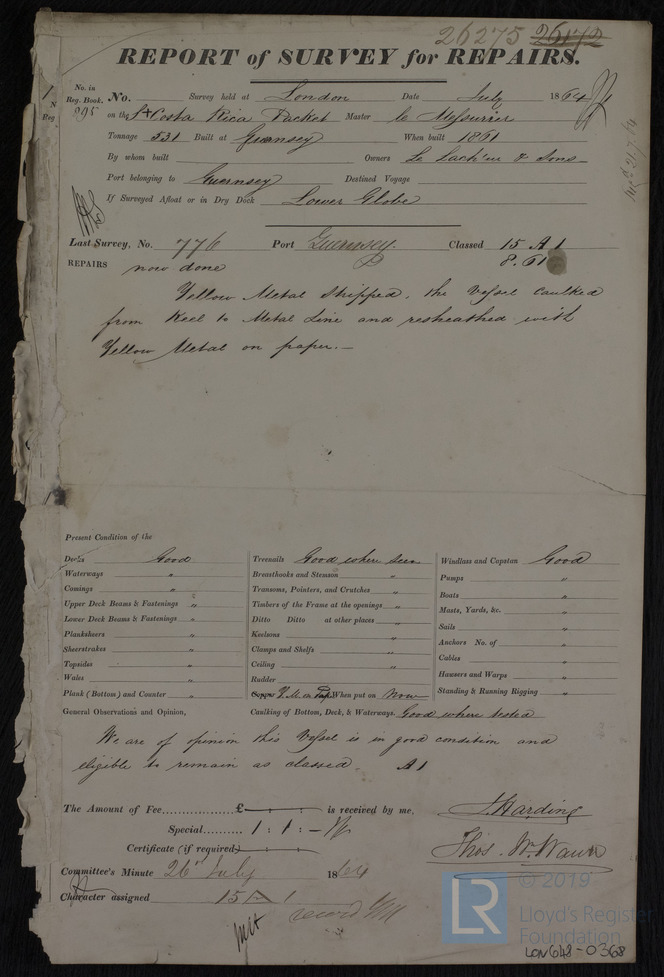 26275 26172
REPORT of SURVEY for REPAIRS.
No. in Reg. Book. 995
No. Survey held at London Date July 1864
on the Costa Rica Packet Master Le Messurier
Tonnage 531 Built at Guernsey When built 1861
By whom built Owners Le Lacheur & Sons
Port belonging to Guernsey Destined Voyage
If Surveyed Afloat or in Dry Dock Lower Globe
Last Survey, No. 776 Port Guernsey. Classed 15 A 1
8.61
REPAIRS now done
Yellow Metal stripped, the Vessel caulked
from Keel to Metal Line and resheathed with
Yellow Metal on paper.—
Present Condition of the
Decks Good
Waterways "
Comings "
Upper Deck Beams & Fastenings "
Lower Deck Beams & Fastenings "
Planksheers "
Sheerstrakes "
Topsides "
Wales "
Plank (Bottom) and Counter "
Treenails Good where seen
Breasthooks and Stemson "
Transoms, Pointers, and Crutches "
Timbers of the Frame at the openings "
Ditto Ditto at other places "
Keelsons "
Clamps and Shelfs "
Ceiling "
Rudder "
Copper Y.M. on Pap. When put on Now
Windlass and Capstan Good
Pumps "
Boats "
Masts, Yards, &c. "
Sails "
Anchors No. of "
Cables "
Hawsers and Warps "
Standing & Running Rigging "
General Observations and Opinion, Caulking of Bottom, Deck, & Waterways. Good where tested
We are of opinion this Vessel is in good condition and
eligible to remain as classed A1
The Amount of Fee £ : : is received by me,
Special 1 : 1 : —
Certificate (if required) : :
J. Harding
Thos. W. Wawn
Committee's Minute 26th July 1864
Character assigned 15 A 1
record YM
© 2019
LR
Lloyd's Register
Foundation
LON648-0368